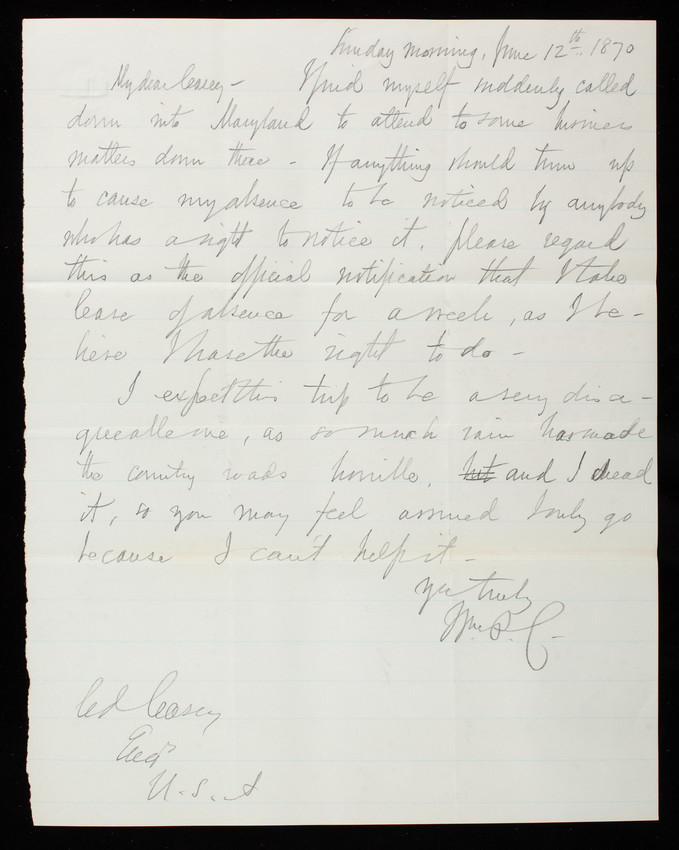 Sunday morning, June 12th. 1870
My dear Casey - I find myself suddenly called
down into Maryland to attend to some business
matters down there - If anything should turn up
to cause my absence to be noticed by anybody
who has a right to notice it, please regard
this as the official notification that I take
leave of absence for a week, as I be-
lieve I have the right to do -
I expect this trip to be a very disa-
greeable one, as so much rain has made
the country roads horrible, but and I dread
it, so you may feel assured I only go
because I can't help it -
Yrs truly
Wm. P. C. -
Casey
Eng
U.S.A